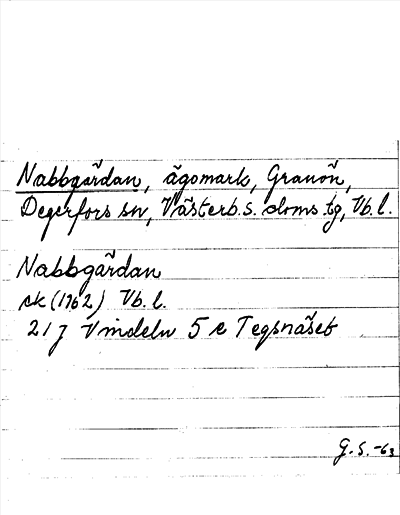 Nabbgårdan, ägomark, Granön,
Degerfors sn, Västerb. s. doms. tg, Vb. l.
Nabbgårdan
ek (1962) Vb. l.
21 J Vindeln 5 e Tegsnäset
G. S. -63